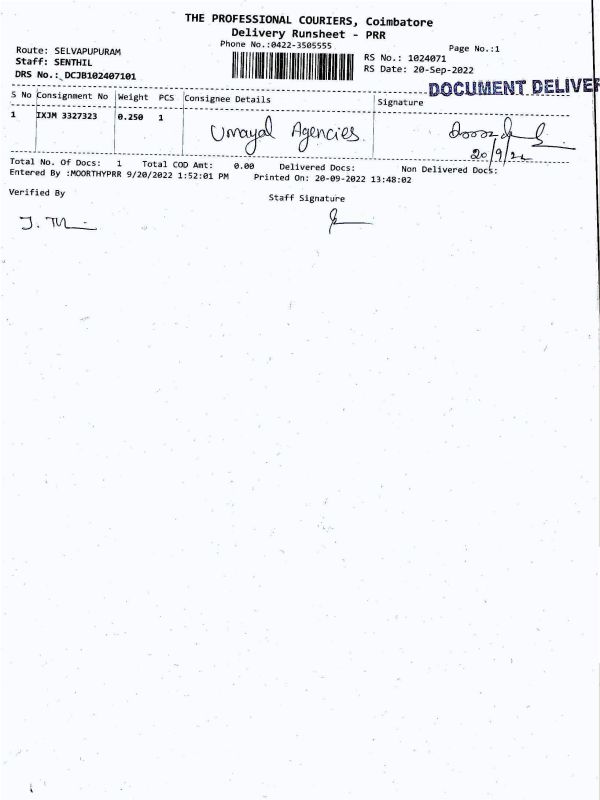 THE PROFESSIONAL COURIERS, Coimbatore
Delivery Runsheet - PRR
Phone No.:0422-3505555
Page No.:1
Route: SELVAPUPURAM
Staff: SENTHIL
DRS No.: DCJB102407101
RS No.: 1024071
RS Date: 20-Sep-2022
DOCUMENT DELIVER
S No Consignment No Weight PCS Consignee Details Signature
1 IXJM 3327323 0.250 1 Umayal Agencies
20/9/22
Total No. Of Docs: 1 Total COD Amt: 0.00 Delivered Docs: Non Delivered Docs:
Entered By :MOORTHYPRR 9/20/2022 1:52:01 PM Printed On: 20-09-2022 13:48:02
Verified By
Staff Signature